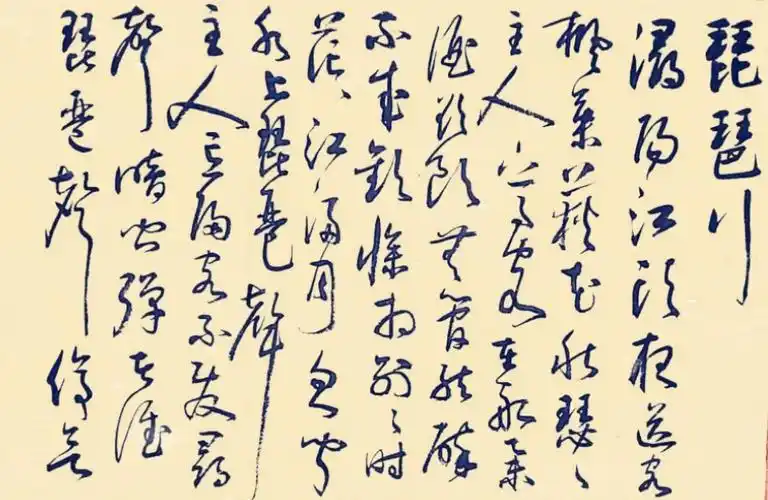 琵琶行
潯陽江頭夜送客
楓葉荻花秋瑟々
主人下馬客在船舉
酒欲飲無管絃醉
不成歡慘將別々時
茫々江浸月忽聞
水上琵琶聲
主人忘歸客不發尋
聲暗問彈者誰
琵琶聲停